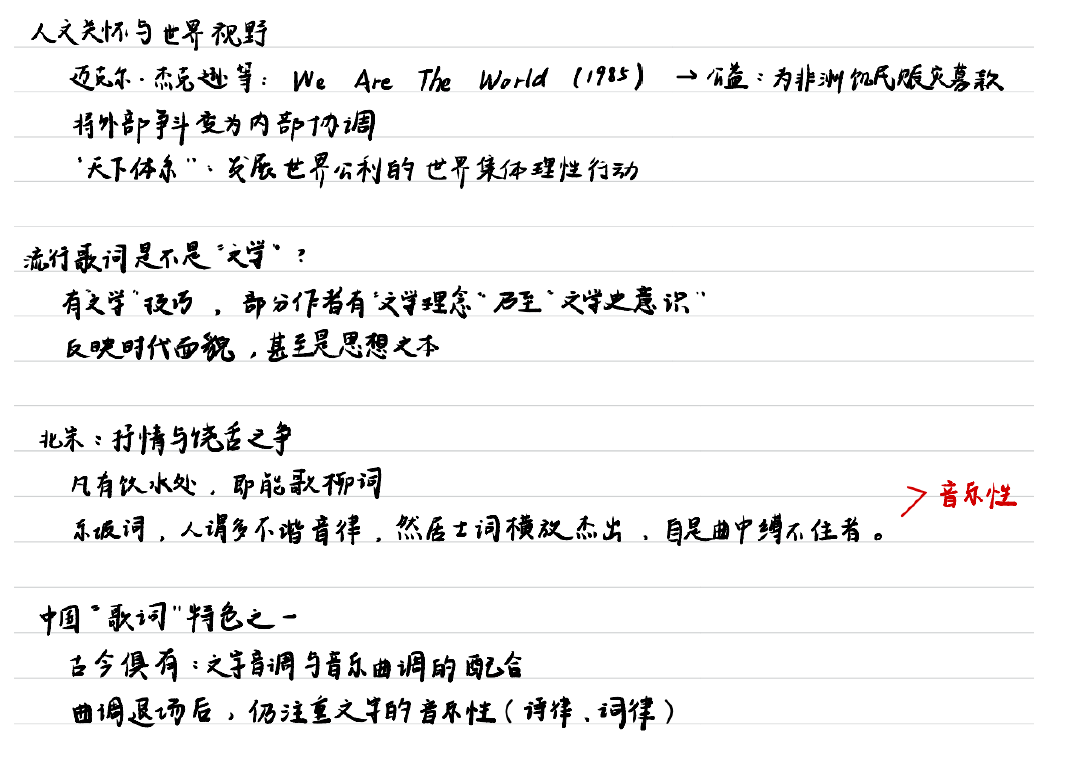 人文关怀与世界视野
迈克尔·杰克逊等: We Are The World (1985) → 公益:为非洲饥民赈灾募款
将外部争斗变为内部协调
“天下体系”:发展世界公利的世界集体理性行动
流行歌词是不是“文学”?
有“文学”技巧,部分作者有“文学理念”乃至“文学史意识”
反映时代面貌,甚至是思想之本
北宋:抒情与饶舌之争
凡有饮水处,即能歌柳词
东坡词,人谓多不谐音律,然居士词横放杰出、自是曲中缚不住者。
> 音乐性
中国“歌词”特色之一
古今俱有:文字音调与音乐曲调的配合
曲调退场后,仍注重文字的音乐性(诗律、词律)